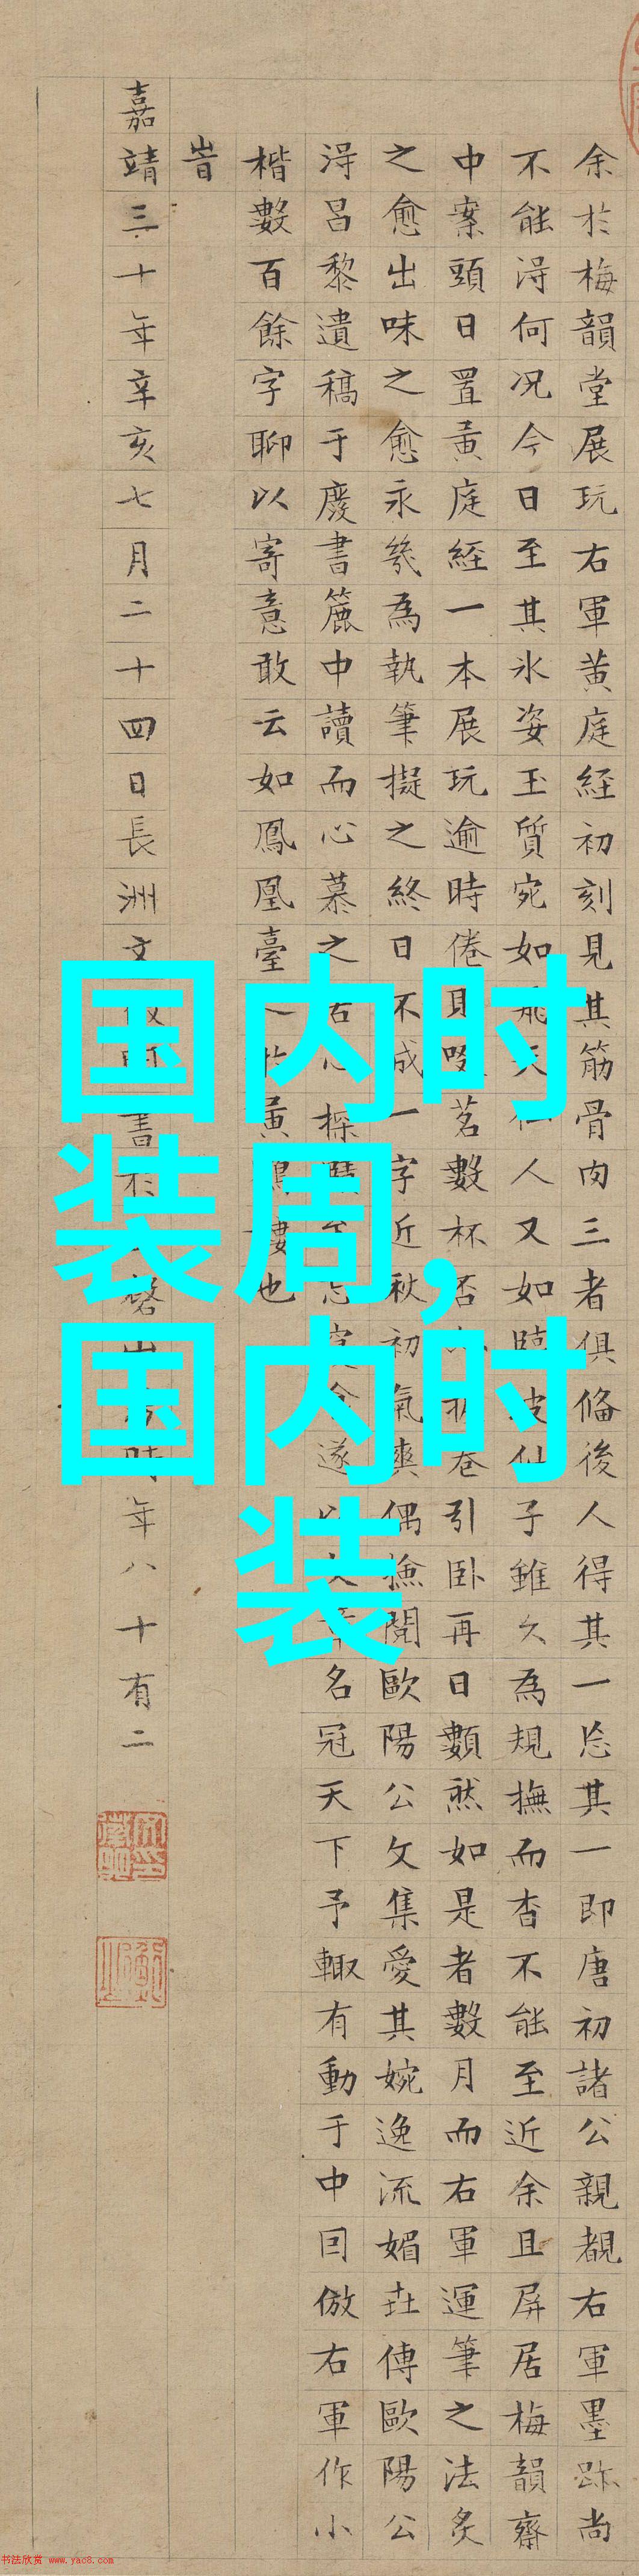 余於梅韻堂展玩右軍黄庭経初刻見其筋骨肉三者俱俻後人得其一忘其一即唐初諸公親覩右軍墨跡尚
不能淂何况今日至其氷姿玉質宛如飛天仙人又如臨波仙子雖久為規撫而杳不能至近余且屏居梅韻齋
中案頭日置黄庭経一本展玩逾時倦則啜茗數杯否卷引卧再日數然如是者數月而右軍運筆之法炙
之愈出味之愈永㡬為執筆擬之終日不成一字近秋初氣爽偶撿閱歐陽公文集愛其婉逸流媚丗傳歐陽公
淂吕黎遺稿于廢書簏中讀而心慕之苦心探賾至忘寝食遂以文章名冠天下予輙有動于中囙倣右軍作小
楷數百餘字聊以寄意敢云如鳳凰臺之於黄鶴樓也
旹
嘉靖三十年辛亥七月二十四日長洲文徴明書於玉磬山房時年八十有二
国内时
装周,
国内时
装
书法欣赏 www.yac8.com